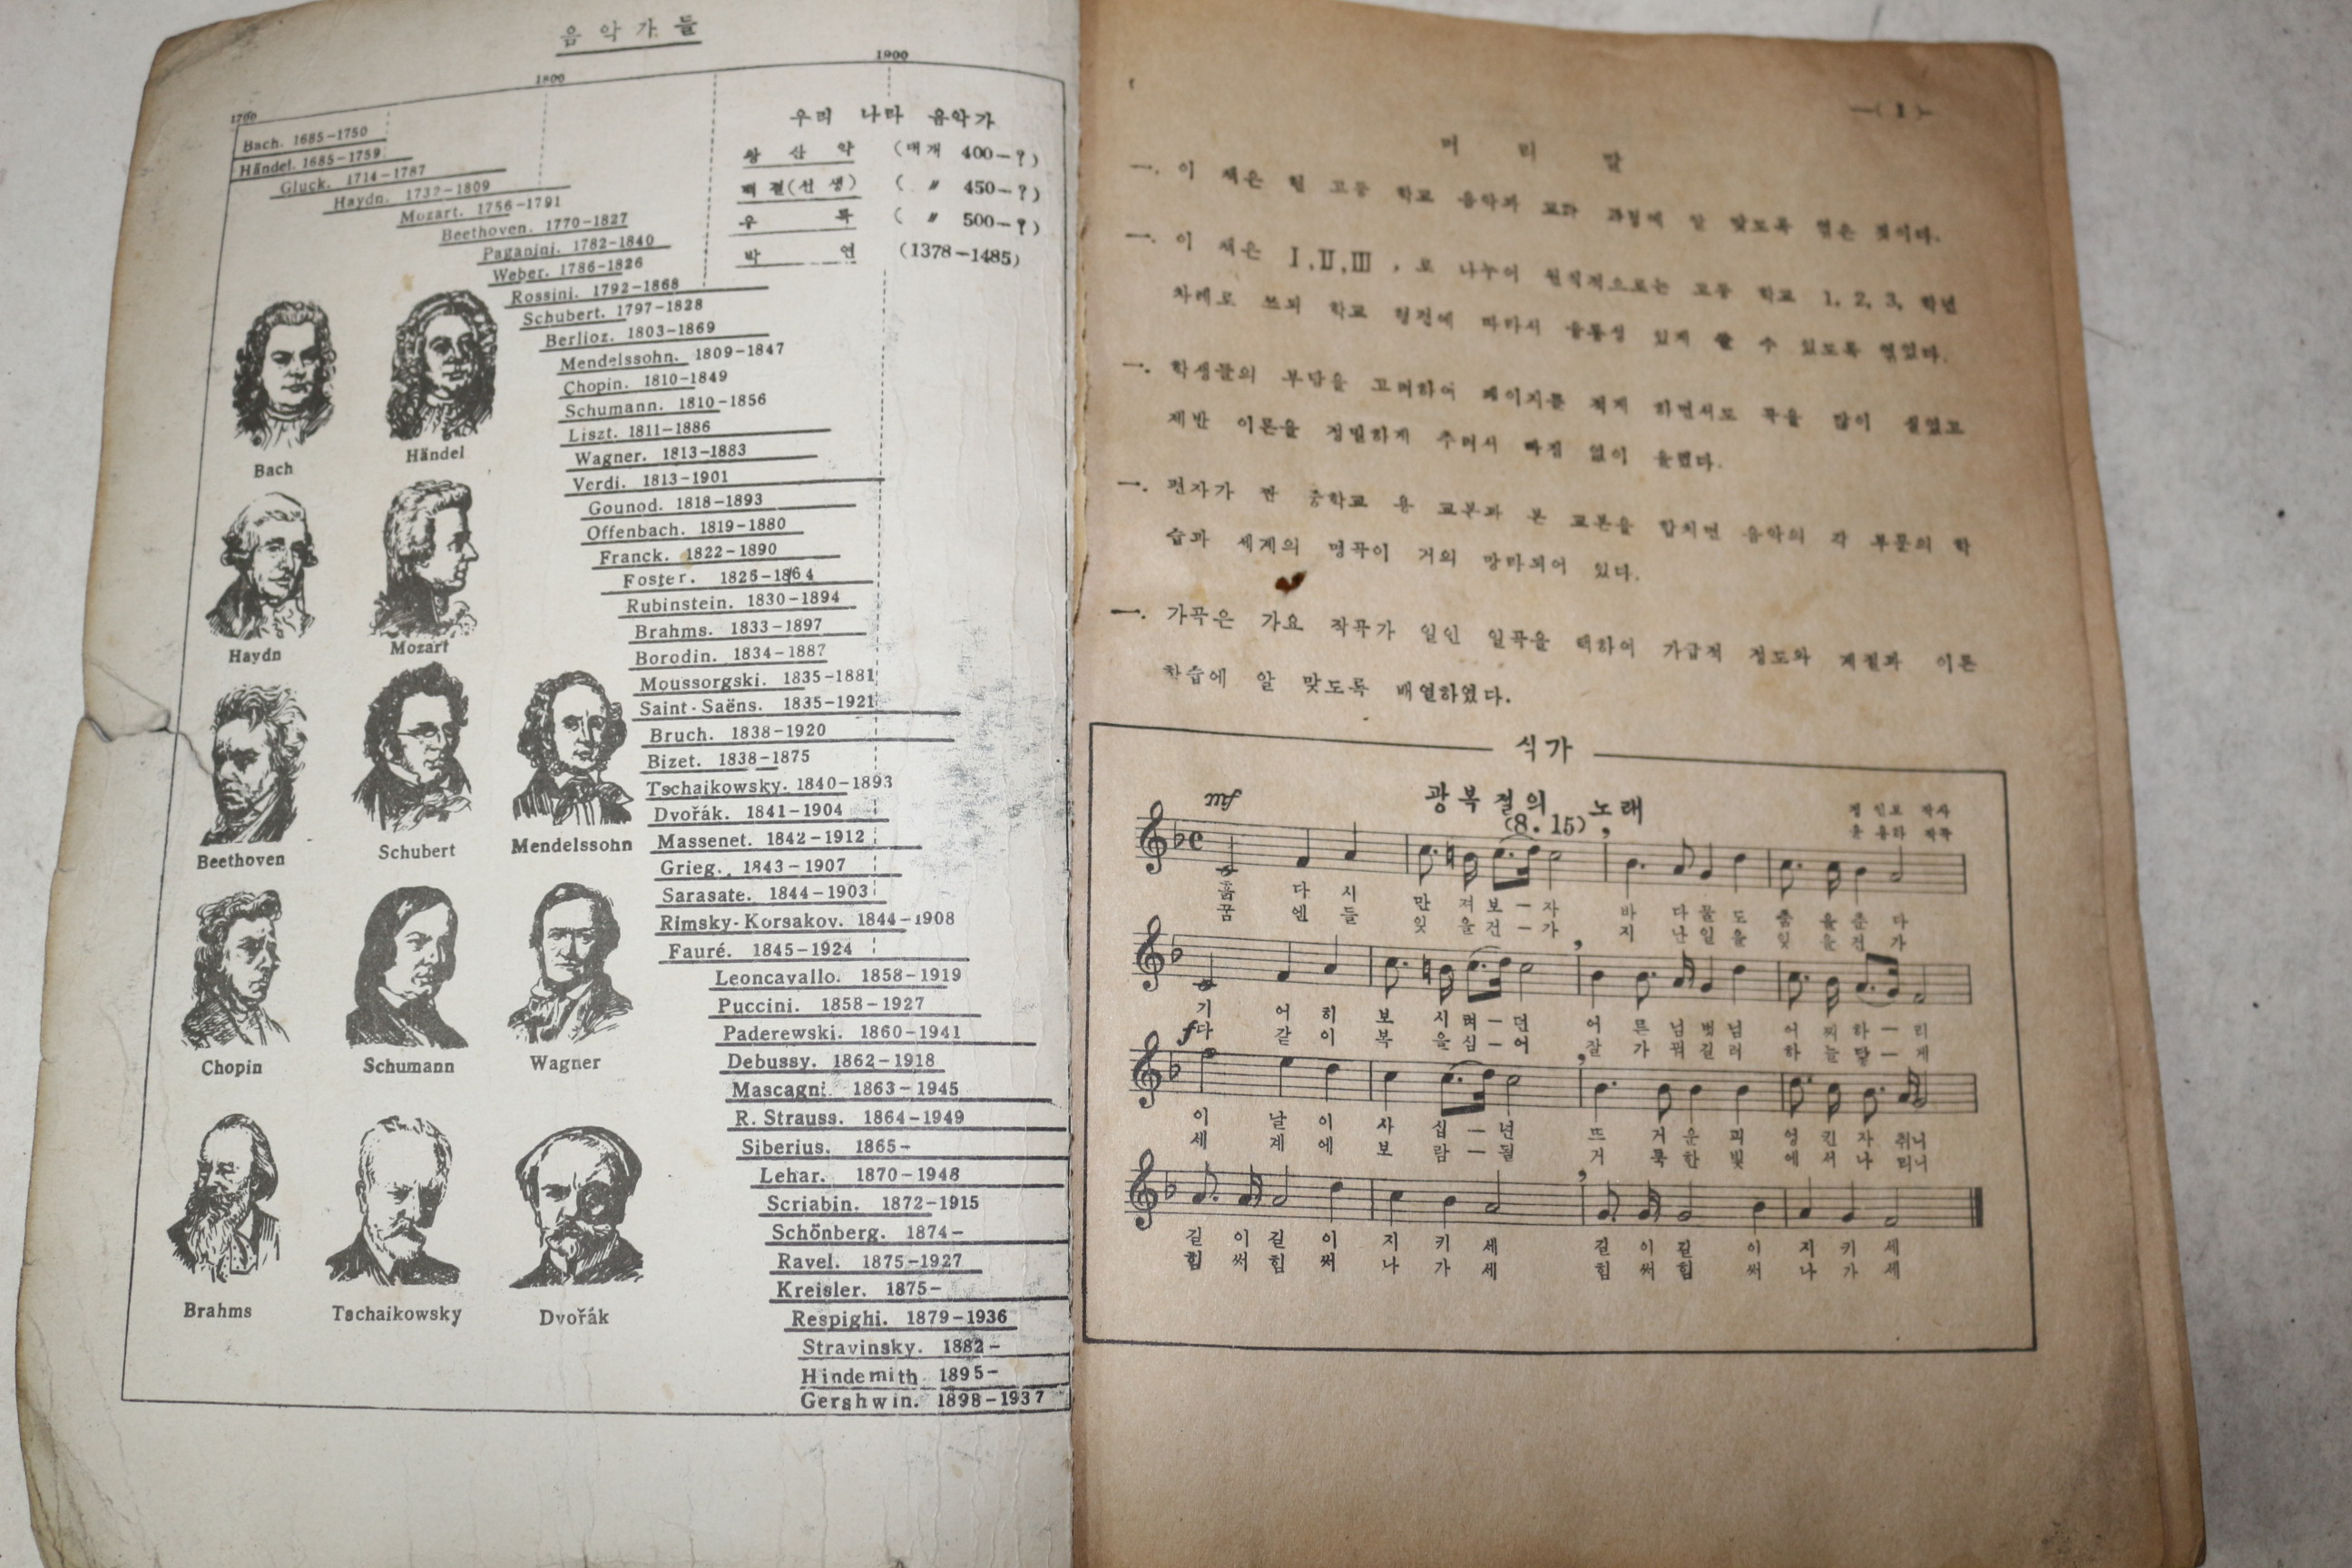 음악가들
1700
1800
1900
Bach. 1685-1750
Händel. 1685-1759
Gluck. 1714-1787
Haydn. 1732-1809
Mozart. 1756-1791
Beethoven. 1770-1827
Paganini. 1782-1840
Weber. 1786-1826
Rossini. 1792-1868
Schubert. 1797-1828
Berlioz. 1803-1869
Mendelssohn. 1809-1847
Chopin. 1810-1849
Schumann. 1810-1856
Liszt. 1811-1886
Wagner. 1813-1883
Verdi. 1813-1901
Gounod. 1818-1893
Offenbach. 1819-1880
Franck. 1822-1890
Foster. 1826-1864
Rubinstein. 1830-1894
Brahms. 1833-1897
Borodin. 1834-1887
Moussorgski. 1835-1881
Saint-Saëns. 1835-1921
Bruch. 1838-1920
Bizet. 1838-1875
Tschaikowsky. 1840-1893
Dvořák. 1841-1904
Massenet. 1842-1912
Grieg. 1843-1907
Sarasate. 1844-1903
Rimsky-Korsakov. 1844-1908
Fauré. 1845-1924
Leoncavallo. 1858-1919
Puccini. 1858-1927
Paderewski. 1860-1941
Debussy. 1862-1918
Mascagni. 1863-1945
R. Strauss. 1864-1949
Siberius. 1865-
Lehar. 1870-1948
Scriabin. 1872-1915
Schönberg. 1874-
Ravel. 1875-1927
Kreisler. 1875-
Respighi. 1879-1936
Stravinsky. 1882-
Hindemith 1895-
Gershwin. 1898-1937
우리 나라 음악가
왕산악 (대개 400-?)
백결(선생) (〃 450-?)
우륵 (〃 500-?)
박연 (1378-1485)
Bach
Händel
Haydn
Mozart
Beethoven
Schubert
Mendelssohn
Chopin
Schumann
Wagner
Brahms
Tschaikowsky
Dvořák
—( 1 )—
머리말
一. 이 책은 고등 학교 음악과 교과 과정에 알 맞도록 엮은 것이다.
一. 이 책은 Ⅰ,Ⅱ,Ⅲ, 로 나누어 원칙적으로는 고등 학교 1, 2, 3, 학년
차례로 쓰되 학교 형편에 따라서 융통성 있게 쓸 수 있도록 엮었다.
一. 학생들의 부담을 고려하여 페이지를 적게 하면서도 곡을 많이 실었고
제반 이론을 정밀하게 추려서 빠짐 없이 올렸다.
一. 편자가 짠 중학교 용 교본과 본 교본을 합치면 음악의 각 부문의 학
습과 세계의 명곡이 거의 망라되어 있다.
一. 가곡은 가요 작곡가 일인 일곡을 택하여 가급적 정도와 계절과 이론
학습에 알 맞도록 배열하였다.
식가
광복절의 노래
(8.15)
정인보 작사
윤용하 작곡
mf
흙 다시 만져보-자 바다물도 춤을춘다
꿈 엔들 잊을건-가 지난일을 잊을건가
기 어히 보시려-던 어른님벗님 어찌하-리
f
다 같이 복을심-어 잘가꿔길러 하늘닿-게
이 날이 사십-년 뜨거운피 엉킨자취니
세 계에 보람-될 거룩한빛 에서나리니
길이길이 지키세 길이길이 지키세
힘써힘써 나가세 힘써힘써 나가세